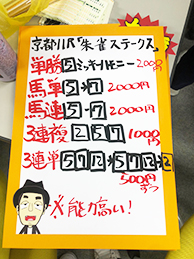 京都11R「朱雀ステークス」
単勝 5 ミッキーハーモニー 2000円
馬単 5→7 2000円
馬連 5-7 2000円
3連複 2 5 7 1000円
3連単
500円
ずつ
※能力高い!